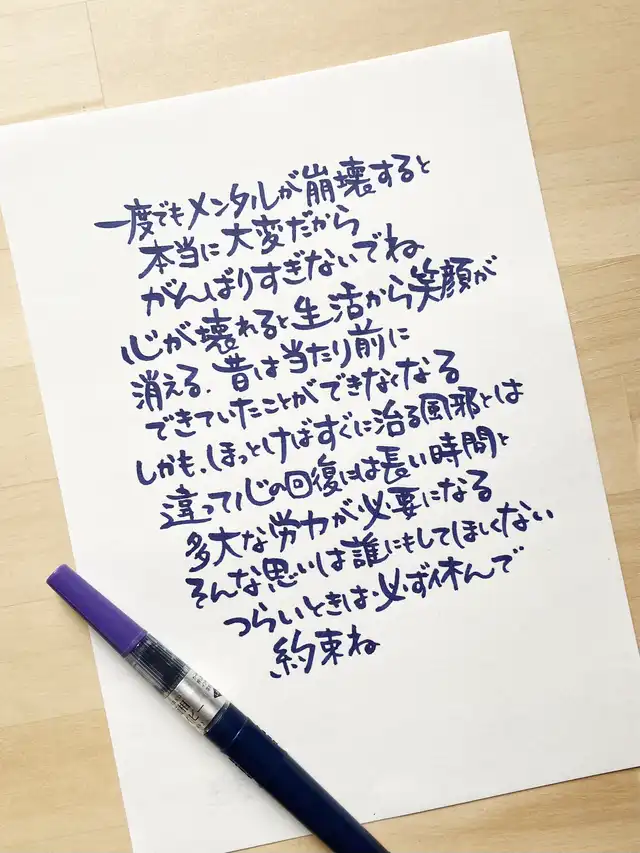 一度でもメンタルが崩壊すると
本当に大変だから
がんばりすぎないでね
心が壊れると生活から笑顔が
消える、昔は当たり前に
できていたことができなくなる
しかも、ほっとけばすぐに治る風邪とは
違って心の回復には長い時間と
多大な労力が必要になる
そんな思いは誰にもしてほしくない
つらいときは必ず休んで
約束ね